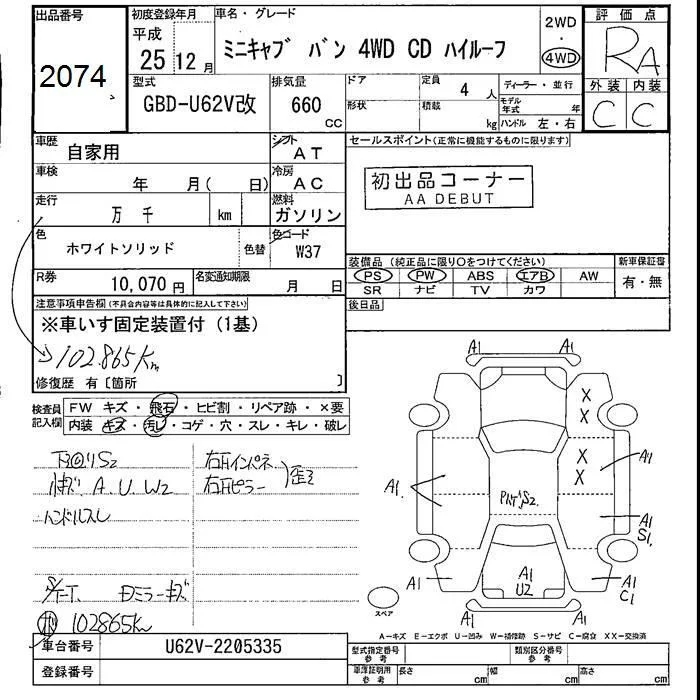 出品番号
2074
初度登録年月
平成
25 12 月
車名・グレード
ミニキャブ バン 4WD CD ハイルーフ
2WD
・
4WD
評価点
RA
外装 内装
C C
型式
GBD-U62V改
排気量
660
CC
ドア
形状
定員
4 人
積載
kg
ディーラー・並行
モデル年式 年
ハンドル 左・右
車歴
自家用
シフト
AT
車検
年 月( 日)
冷房
AC
走行
万 千 km
燃料
ガソリン
色
ホワイトソリッド
色替
色コード
W37
R券
10,070 円
名変通知期限
月 日
セールスポイント(正常に機能するものに限ります)
初出品コーナー
AA DEBUT
装備品(純正品に限り○をつけてください)
新車保証書
PS PW ABS エアB AW
SR ナビ TV カワ
有・無
後日品
注意事項申告欄(不具合内容等は具体的に記入して下さい)
※車いす固定装置付(1基)
102.865Km
修復歴 有〔箇所 〕
検査員記入欄
FW キズ・飛石・ヒビ割・リペア跡・×要
内装 キズ・汚レ・コゲ・穴・スレ・キレ・破レ
下回りS2
小キズ A.U.W2
ハンドルスレ
右Fインパネ
右Fピラー
歪ミ
Dミラーキズ
102865Km
A1 A1
X
X
X
X
A1
A1
PハンS2
A1
S1
A1
A1
U2
A1
C1
A1 A1
スペア
A-キズ E-エクボ U-凹み W-補修跡 S-サビ C-腐食 XX-交換済
車台番号
U62V-2205335
登録番号
型式指定番号
参考
類別区分番号
参考
車庫証明用
参考
長さ cm
幅 cm
高さ cm